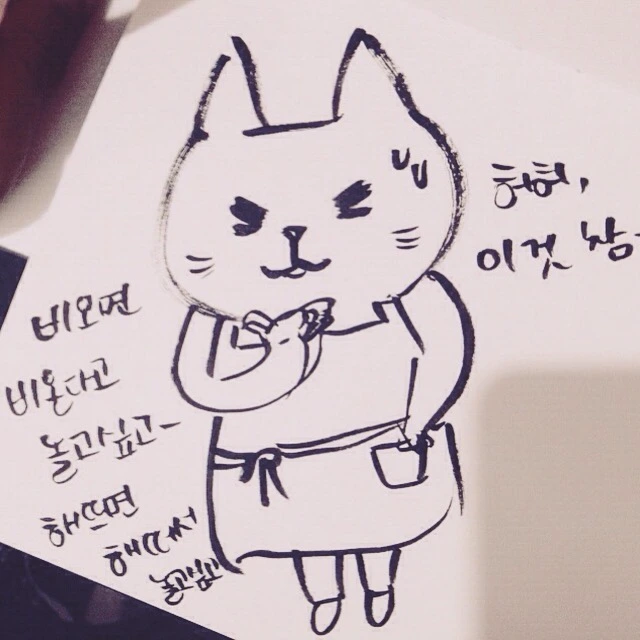 비오면
비온다고
놀고싶고~
해뜨면
해떠서
놀고싶고
허허,
이것 참~